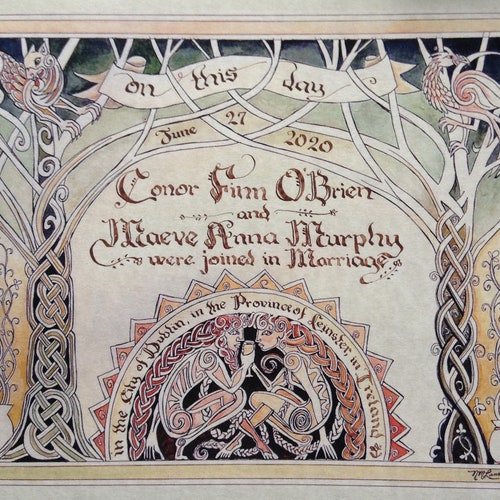 on this day
June 27 2020
Conor Finn O'Brien
and
Maeve Anna Murphy
were joined in Marriage
in the City of Dublin, in the Province of Leinster, in Ireland